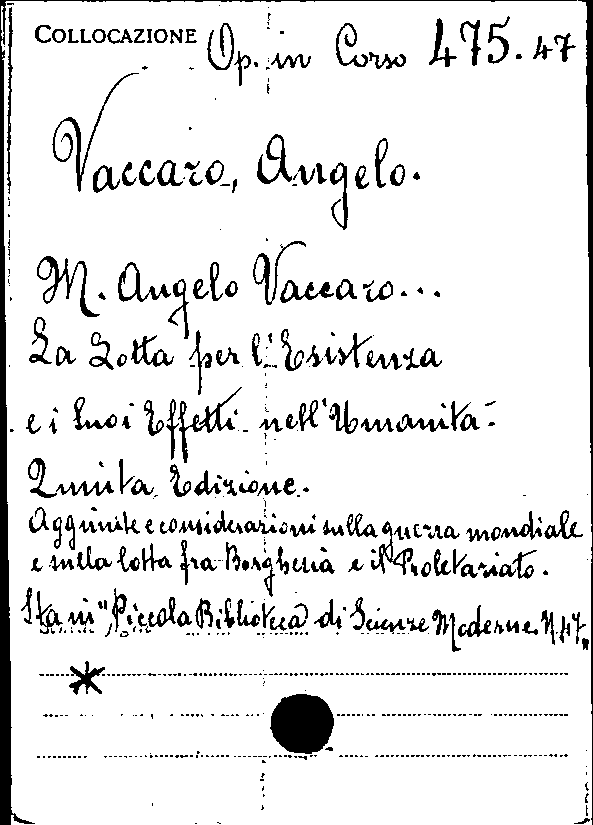 COLLOCAZIONE Op. in Corso 475.47
Vaccaro, Angelo.
M. Angelo Vaccaro...
La Lotta per l'Esistenza
e i Suoi Effetti nell'Umanità-
Quinta Edizione.
Aggiunte e considerazioni sulla guerra mondiale
e sulla lotta fra Borghesia e il Proletariato.
Sta in "Piccola Biblioteca di Scienze Moderne. N 47"